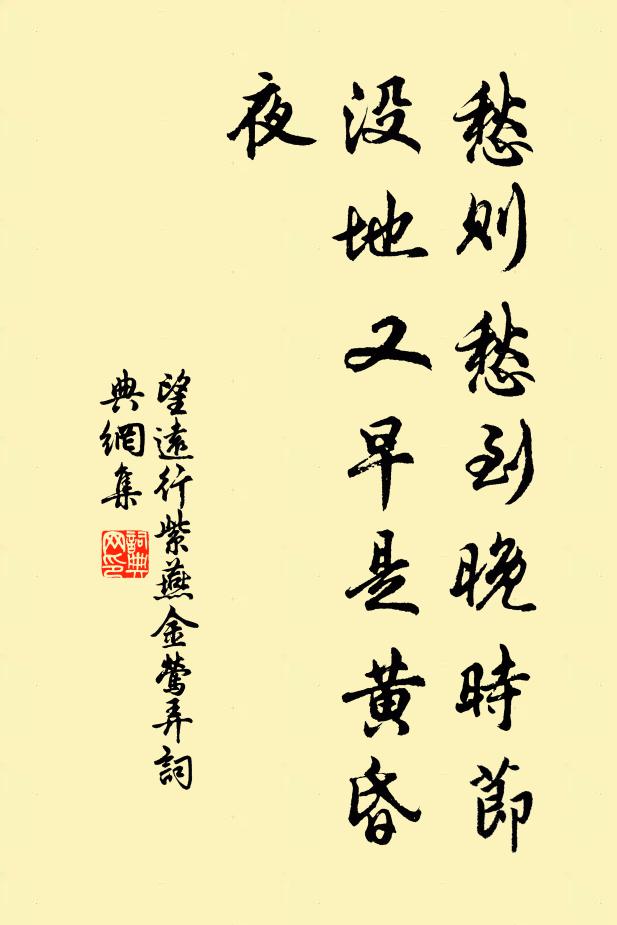 愁則愁到晚時節
没地又早是黄昏
夜
望遠行紫燕金鶯弄詞
典網集
詞典
网印